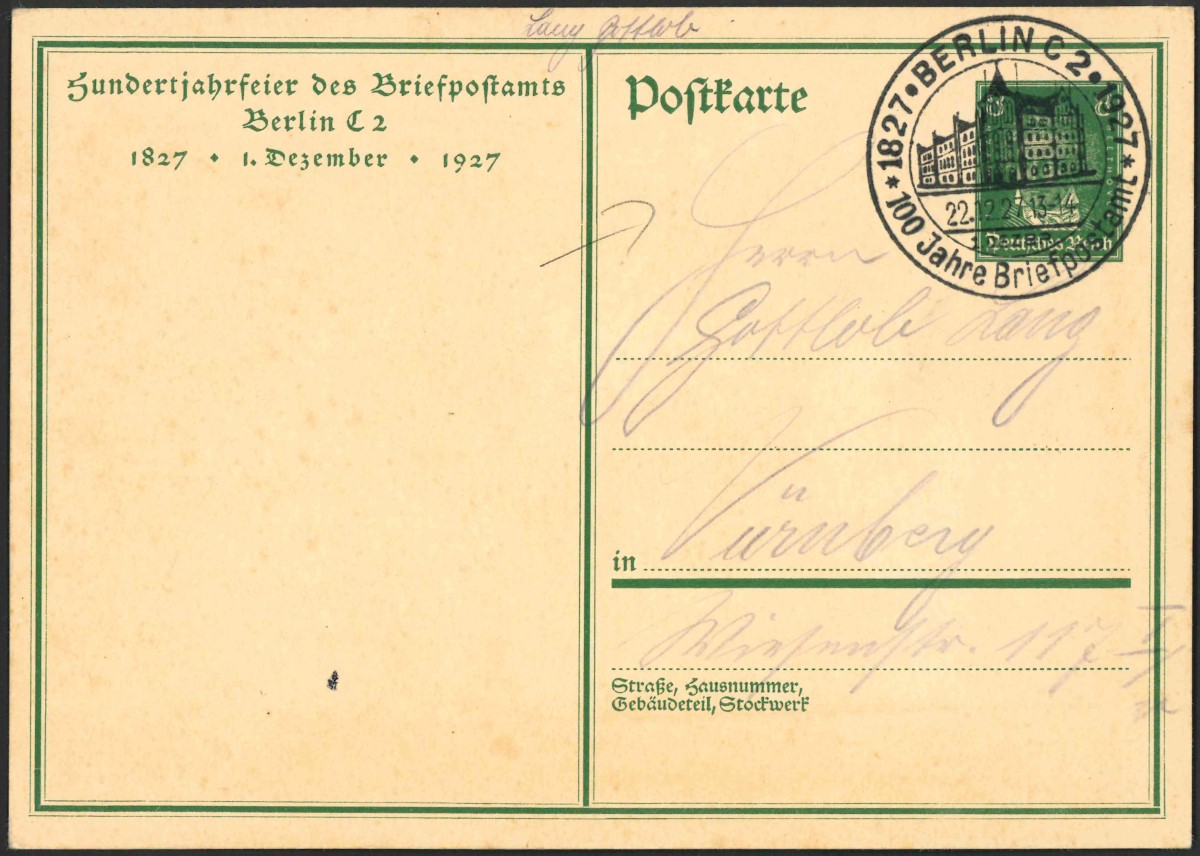 Lang Gottlob
Hundertjahrfeier des Briefpostamts
Berlin C 2
1827 • 1. Dezember • 1927
Postkarte
1827 • BERLIN C 2 • 1927
22.12.27.13-14
* 100 Jahre Briefpostamt *
Deutsches Reich
Herrn
Gottlob Lang
in Nürnberg
Wiesenstr. 117
Straße, Hausnummer,
Gebäudeteil, Stockwerk